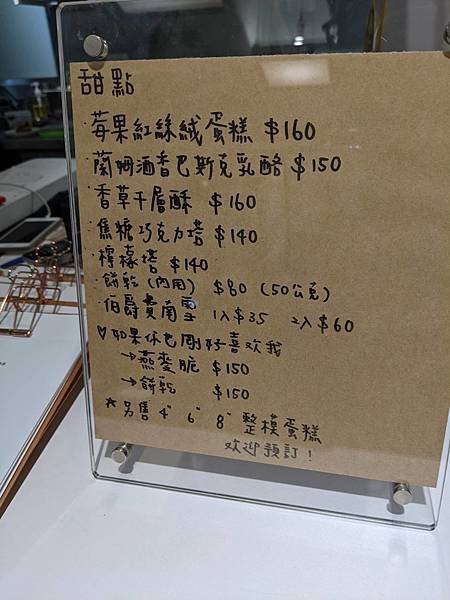 甜點
·莓果紅絲絨蛋糕 $160
·蘭姆酒香巴斯克乳酪 $150
·香草千層酥 $160
·焦糖巧克力塔 $140
·檸檬塔 $140
·餅乾(內用) $80 (50公克)
·伯爵費南雪 1入$35 2入$60
♡如果你也剛好喜欢我
→燕麥脆 $150
→餅乾 $150
☆另售 4" 6" 8" 整模蛋糕
欢迎預訂!